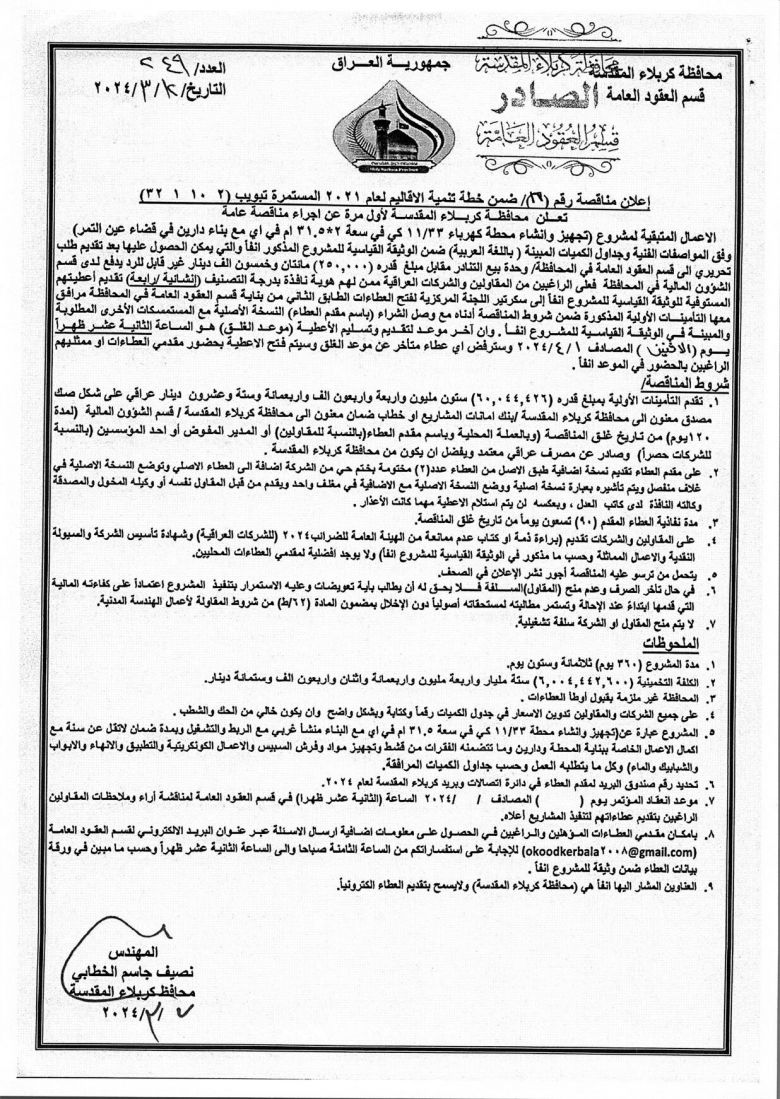 محافظة كربلاء المقدسة
قسم العقود العامة
محافظة كربلاء المقدسة
الصادر
قسم العقود العامة
جمهورية العراق
Holy Karbala Province
العدد/ ٢٤٩
التاريخ/ /٣/٢٠٢٤
إعلان مناقصة رقم (١٦)/ ضمن خطة تنمية الاقاليم لعام ٢٠٢١ المستمرة تبويب (٢ ١٠ ١ ٣٢)
تعلن محافظة كربلاء المقدسة لأول مرة عن اجراء مناقصة عامة
الاعمال المتبقية لمشروع (تجهيز وانشاء محطة كهرباء ١١/٣٣ كي في سعة ٢*٣١.٥ ام في اي مع بناء دارين في قضاء عين التمر)
وفق المواصفات الفنية وجداول الكميات المبينة (باللغة العربية) ضمن الوثيقة القياسية للمشروع المذكور انفاً والتي يمكن الحصول عليها بعد تقديم طلب
تحريري الى قسم العقود العامة في المحافظة/ وحدة بيع التنادر مقابل مبلغ قدره (٢٥٠,٠٠٠) مائتان وخمسون الف دينار غير قابل للرد يدفع لدى قسم
الشؤون المالية في المحافظة فعلى الراغبين من المقاولين والشركات العراقية ممن لهم هوية نافذة بدرجة التصنيف (إنشائية /رابعة) تقديم أعطيتهم
المستوفية للوثيقة القياسية للمشروع انفاً إلى سكرتير اللجنة المركزية لفتح العطاءات الطابق الثاني من بناية قسم العقود العامة في المحافظة مرافق
معها التأمينات الأولية المذكورة ضمن شروط المناقصة أدناه مع وصل الشراء (باسم مقدم العطاء) النسخة الأصلية مع المستمسكات الأخرى المطلوبة
والمبينة في الوثيقة القياسية للمشروع انفاً . وان آخر موعد لتقديم وتسليم الأعطية (موعد الغلق) هو الساعة الثانية عشر ظهراً
يوم (الاثنين) المصادف ٢٠٢٤/٤/١ وسترفض اي عطاء متأخر عن موعد الغلق وسيتم فتح الاعطية بحضور مقدمي العطاءات او ممثليهم
الراغبين بالحضور في الموعد انفاً .
شروط المناقصة/
١. تقدم التأمينات الأولية بمبلغ قدره (٦٠,٠٤٤,٤٢٦) ستون مليون واربعة واربعون الف واربعمائة وستة وعشرون دينار عراقي على شكل صك
مصدق معنون الى محافظة كربلاء المقدسة /بنك امانات المشاريع او خطاب ضمان معنون الى محافظة كربلاء المقدسة / قسم الشؤون المالية (لمدة
١٢٠يوم) من تاريخ غلق المناقصة (وبالعملة المحلية وباسم مقدم العطاء(بالنسبة للمقاولين) أو المدير المفوض أو احد المؤسسين (بالنسبة
للشركات حصراً) وصادر عن مصرف عراقي معتمد ويفضل ان يكون من محافظة كربلاء المقدسة .
٢. على مقدم العطاء تقديم نسخة اضافية طبق الاصل من العطاء عدد(٢) مختومة بختم حي من الشركة اضافة الى العطاء الاصلي وتوضع النسخة الاصلية في
غلاف منفصل ويتم تأشيره بعبارة نسخة اصلية ووضع النسخة الاصلية مع الاضافية في مغلف واحد ويقدم من قبل المقاول نفسه أو وكيله المخول والمصدقة
وكالته النافذة لدى كاتب العدل ، وبعكسه لن يتم استلام الاعطية مهما كانت الأعذار .
٣. مدة نفاذية العطاء المقدم (٩٠) تسعون يوماً من تاريخ غلق المناقصة.
٤. على المقاولين والشركات تقديم (براءة ذمة او كتاب عدم ممانعة من الهيئة العامة للضرائب٢٠٢٤ (للشركات العراقية) وشهادة تأسيس الشركة والسيولة
النقدية والاعمال المماثلة وحسب ما مذكور في الوثيقة القياسية للمشروع انفاً) ولا يوجد افضلية لمقدمي العطاءات المحليين.
٥. يتحمل من ترسو عليه المناقصة أجور نشر الإعلان في الصحف.
٦. في حال تأخر الصرف وعدم منح (المقاول)السلفة فلا يحق له أن يطالب بأية تعويضات وعليه الاستمرار بتنفيذ المشروع اعتماداً على كفاءته المالية
التي قدمها ابتداءً عند الإحالة وتستمر مطالبته لمستحقاته أصولياً دون الإخلال بمضمون المادة (٦٢/ط) من شروط المقاولة لأعمال الهندسة المدنية.
٧. لا يتم منح المقاول او الشركة سلفة تشغيلية.
الملحوظات
١. مدة المشروع (٣٦٠ يوم) ثلاثمائة وستون يوم.
٢. الكلفة التخمينية (٦,٠٠٤,٤٤٢,٦٠٠) ستة مليار واربعة مليون واربعمائة واثنان واربعون الف وستمائة دينار.
٣. المحافظة غير ملزمة بقبول أوطأ العطاءات .
٤. على جميع الشركات والمقاولين تدوين الاسعار في جدول الكميات رقماً وكتابة وبشكل واضح وان يكون خالي من الحك والشطب .
٥. المشروع عبارة عن(تجهيز وانشاء محطة ١١/٣٣ كي في سعة ٣١.٥ ام في اي مع البناء منشأ غربي مع الربط والتشغيل وبمدة ضمان لاتقل عن سنة مع
اكمال الاعمال الخاصة ببناية المحطة ودارين وما تتضمنه الفقرات من قشط وتجهيز مواد وفرش السبيس والاعمال الكونكريتية والتطبيق والانهاء والابواب
والشبابيك والماء) وكل ما يتطلبه العمل وحسب جداول الكميات المرافقة.
٦. تحديد رقم صندوق البريد لمقدم العطاء في دائرة اتصالات وبريد كربلاء المقدسة لعام ٢٠٢٤.
٧. موعد انعقاد المؤتمر يوم ( ) المصادف / / ٢٠٢٤ الساعة (الثانية عشر ظهرا) في قسم العقود العامة لمناقشة أراء وملاحظات المقاولين
الراغبين بتقديم عطاءاتهم لتنفيذ المشاريع أعلاه.
٨. بامكان مقدمي العطاءات المؤهلين والراغبين في الحصول على معلومات اضافية ارسال الاسئلة عبر عنوان البريد الالكتروني لقسم العقود العامة
(okoodkerbala٢٠٠٨@gmail.com) للإجابة على استفساراتكم من الساعة الثامنة صباحا والى الساعة الثانية عشر ظهراً وحسب ما مبين في ورقة
بيانات العطاء ضمن وثيقة للمشروع انفاً .
٩. العناوين المشار اليها انفاً هي (محافظة كربلاء المقدسة) ولايسمح بتقديم العطاء الكترونياً.
المهندس
نصيف جاسم الخطابي
محافظ كربلاء المقدسة
/٣/٢٠٢٤